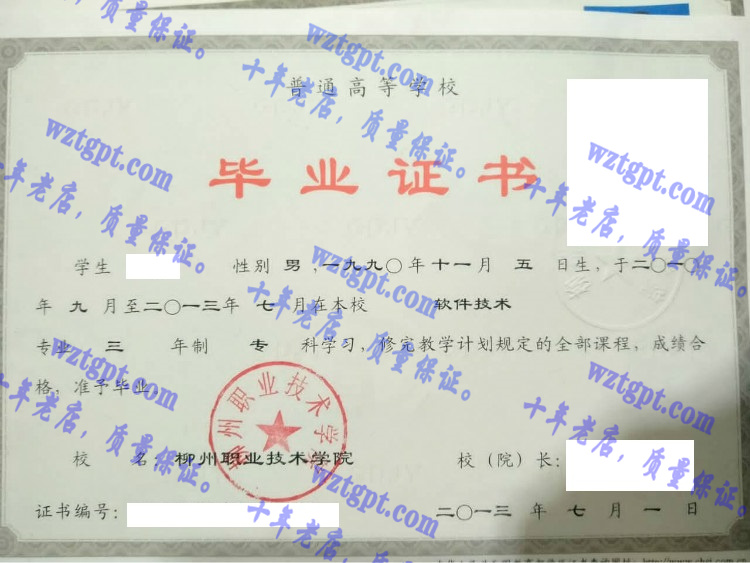 普通高等学校
毕业证书
学生 性别 男，一九九〇年十一月 五 日生，于二〇一〇
年 九 月至二〇一三年 七 月在本校 软件技术
专业 三 年制 专 科学习，修完教学计划规定的全部课程，成绩合
格，准予毕业。
柳州职业技术学院
校 名：柳州职业技术学院 校（院）长：
证书编号： 二〇一三 年 七 月 一 日
wztgpt.com
十年老店，质量保证。
wztgpt.com
十年老店，质量保证。
wztgpt.com
十年老店，质量保证。
wztgpt.com
十年老店，质量保证。
wztgpt.com
十年老店，质量保证。
wztgpt.com
十年老店，质量保证。
wztgpt.com
十年老店，质量保证。
wztgpt.com
十年老店，质量保证。